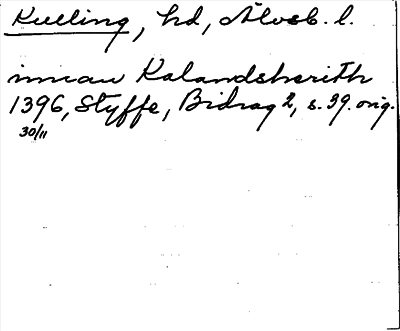 Kulling, hd, Älvsb. l.
innan Kalandsherith
1396, Styffe, Bidrag 2, s. 39. orig.
30/11